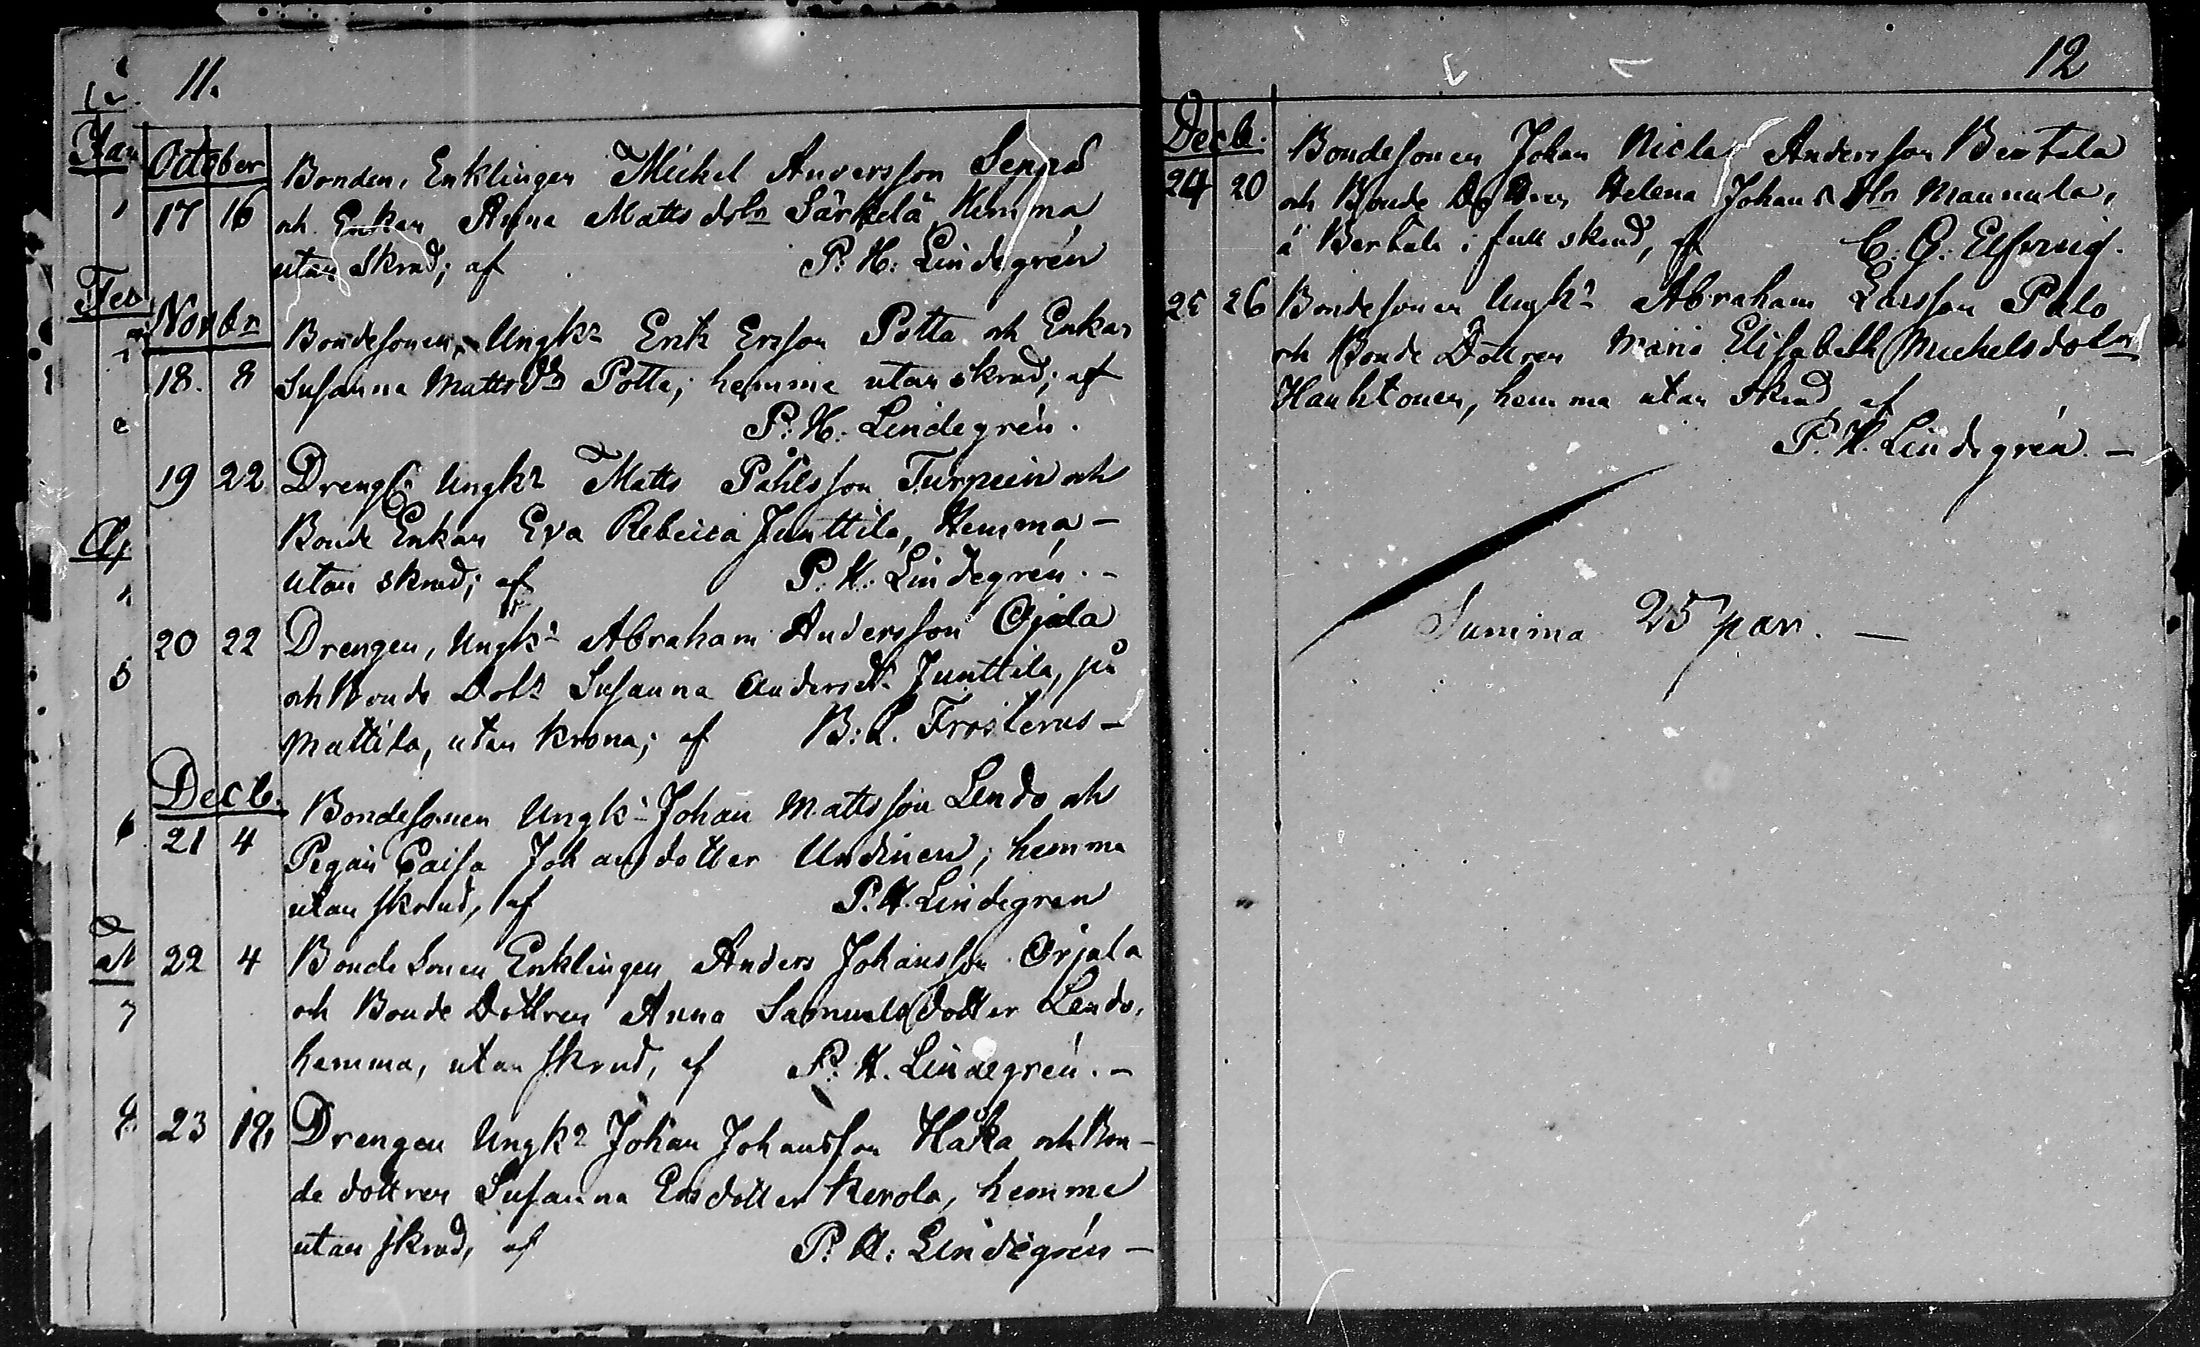 11.
October
17 16 Bonden, Enklingen Michel Andersson Seppä
och Enkan Anna Matts dotr Särkelä Hemma
utan Skrud; af P: H: Lindegrén
Novbr
18. 8 Bondesonen, Ungk: Erik Ersson Potta och Enkan
Susanna Mattsdr Potta; hemma utan skrud; af
P: H: Lindegrén.
19 22 Drengen Ungkr Matts Påhlsson Turpein och
Bonde Enkan Eva Rebecca Junttila, Hemma –
utan skrud; af P: H: Lindegrén. –
20 22 Drengen, Ungkr Abraham Andersson Ojala
och Bonde Dotr Susanna Andersdr Junttila, på
Mattila, utan krona; af B: L. Frosterus –
Decb.
21 4 Bondesonen Ungkr Johan Mattsson Lendo och
Pegan Caisa Johansdotter Undinen; hemma
utan skrud, af P. H. Lindegren
22 4 Bonde Sonen Enklingen Anders Johansson Orjala
och Bonde Dottren Anna Samuelsdotter Lendo,
hemma, utan skrud, af P: H. Lindegrén. –
23 18 Drengen Ungkr Johan Johansson Haka och Bon-
de dottren Susanna Ersdotter Kerola, hemma
utan skrud, af P: H: Lindegrén –
12
Decb.
24 20 Bondesonen Johan Niclas Andersson Bertela
och Bonde Dottren Helena Johans dtr Mannula,
å Bertela i full skrud, af C. G. Elfving.
25 26 Bondesonen Ungkr Abraham Larsson Palo
och Bonde Dottren Maria Elisabeth Michelsdotr
Hauhtonen, hemma utan Skrud af
P. H. Lindegrén. –
Summa 25 par. –